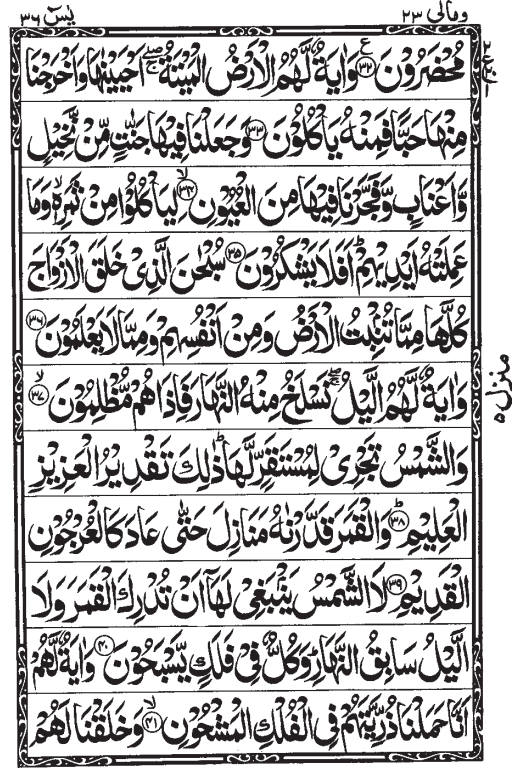 ومالی ۲۳
یٰسٓ ۳۶
مُحْضَرُوْنَ ۝۳۲ وَاٰیَةٌ لَّهُمُ الْاَرْضُ الْمَیْتَةُ ۖۚ اَحْیَیْنٰهَا وَاَخْرَجْنَا
مِنْهَا حَبًّا فَمِنْهُ یَاْكُلُوْنَ ۝۳۳ وَجَعَلْنَا فِیْهَا جَنّٰتٍ مِّنْ نَّخِیْلٍ
وَّاَعْنَابٍ وَّفَجَّرْنَا فِیْهَا مِنَ الْعُیُوْنِ ۝۳۴ۙ لِیَاْكُلُوْا مِنْ ثَمَرِهٖ ۙ وَمَا
عَمِلَتْهُ اَیْدِیْهِمْ ؕ اَفَلَا یَشْكُرُوْنَ ۝۳۵ سُبْحٰنَ الَّذِیْ خَلَقَ الْاَزْوَاجَ
كُلَّهَا مِمَّا تُنْۢبِتُ الْاَرْضُ وَمِنْ اَنْفُسِهِمْ وَمِمَّا لَا یَعْلَمُوْنَ ۝۳۶
وَاٰیَةٌ لَّهُمُ الَّیْلُ ۖۚ نَسْلَخُ مِنْهُ النَّهَارَ فَاِذَا هُمْ مُّظْلِمُوْنَ ۝۳۷ۙ
وَالشَّمْسُ تَجْرِیْ لِمُسْتَقَرٍّ لَّهَا ؕ ذٰلِكَ تَقْدِیْرُ الْعَزِیْزِ
الْعَلِیْمِ ۝۳۸ؕ وَالْقَمَرَ قَدَّرْنٰهُ مَنَازِلَ حَتّٰی عَادَ كَالْعُرْجُوْنِ
الْقَدِیْمِ ۝۳۹ لَا الشَّمْسُ یَنْۢبَغِیْ لَهَاۤ اَنْ تُدْرِكَ الْقَمَرَ وَلَا
الَّیْلُ سَابِقُ النَّهَارِ ؕ وَكُلٌّ فِیْ فَلَكٍ یَّسْبَحُوْنَ ۝۴۰ وَاٰیَةٌ لَّهُمْ
اَنَّا حَمَلْنَا ذُرِّیَّتَهُمْ فِی الْفُلْكِ الْمَشْحُوْنِ ۝۴۱ۙ وَخَلَقْنَا لَهُمْ
منزل ۵